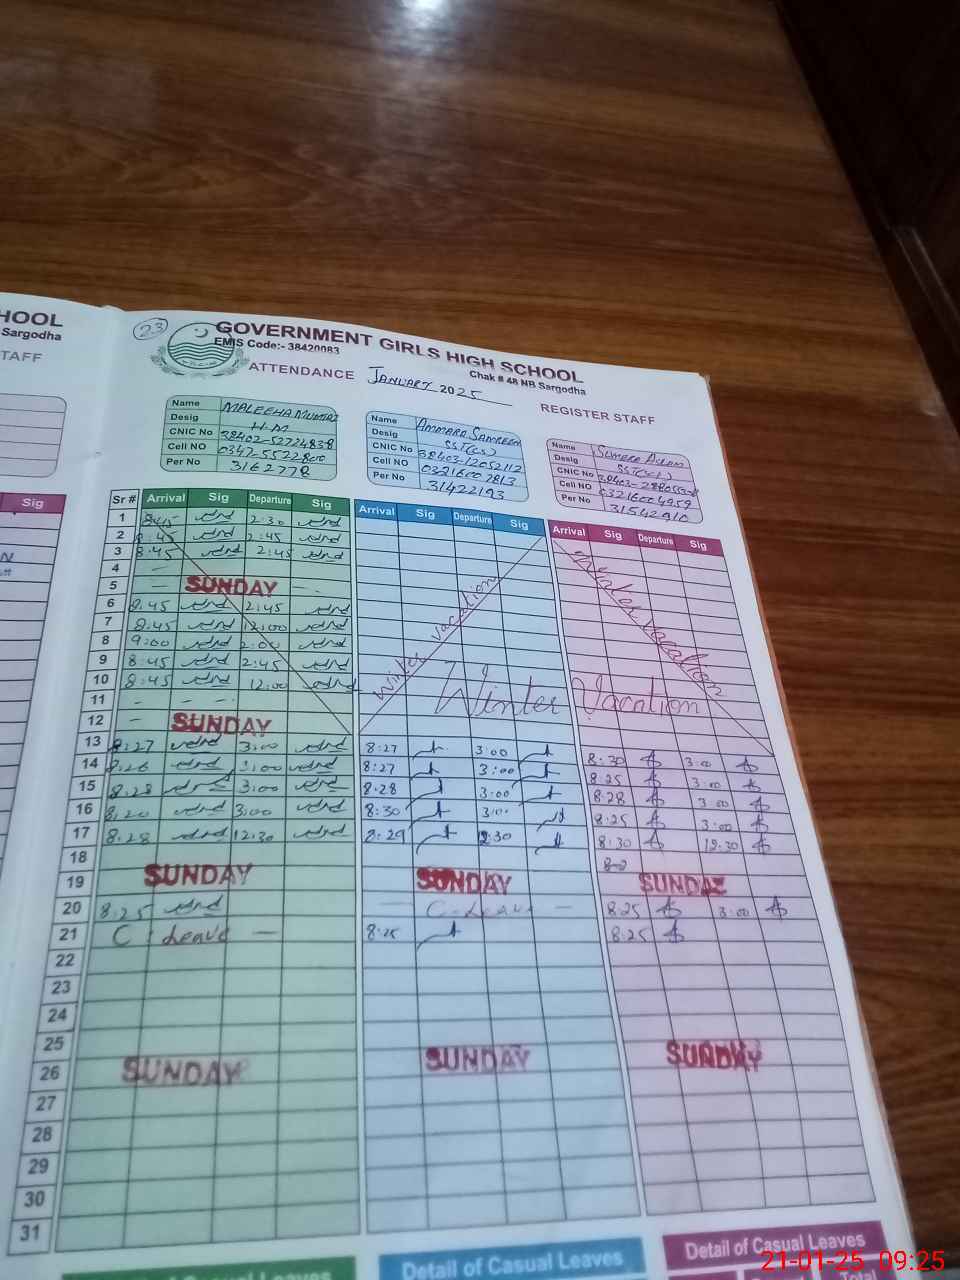 HOOL
Sargodha
TAFF
Sig
23
GOVERNMENT GIRLS HIGH SCHOOL
EMIS Code:- 38420083
Chak # 48 NB Sargodha
ATTENDANCE JANUARY 2025
REGISTER STAFF
Name MALEEHA MUMTAZ
Desig H.M
CNIC No 38402-5272483-8
Cell NO 0347-5522800
Per No 3162778
Name AMMARA SAMREEN
Desig SST(CS)
CNIC No
Cell NO 03216007813
Per No 31422193
Name
Desig
CNIC No
Cell NO 03216004959
Per No 31542910
Sr # Arrival Sig Departure Sig Arrival Sig Departure Sig Arrival Sig Departure Sig
1 8:45 2:30
2 8:45 2:45
3 8:45 2:45
4 —
5 — SUNDAY —
6 8:45 2:45
7 8:45 12:00
8 9:00 2:00
9 8:45 2:45
10 8:45 12:00
Winter vacation
Winter vacation
Winter Vacation
11 - - -
12 - SUNDAY
13 8:27 3:00 8:27 3:00 8:30 3:00
14 8:26 3:00 8:27 3:00 8:25 3:00
15 8:28 3:00 8:28 3:00 8:28 3:00
16 8:20 3:00 8:30 3:00 8:25 3:00
17 8:28 12:30 8:29 12:30 8:30 12:30
18
19 SUNDAY SUNDAY SUNDAY
20 8:25 — C-Leave — 8:25 3:00
21 C-Leave — 8:25 8:25
22
23
24
25
26 SUNDAY SUNDAY SUNDAY
27
28
29
30
31
Detail of Casual Leaves
Detail of Casual Leaves
Detail of Casual Leaves
21-01-25 09:25